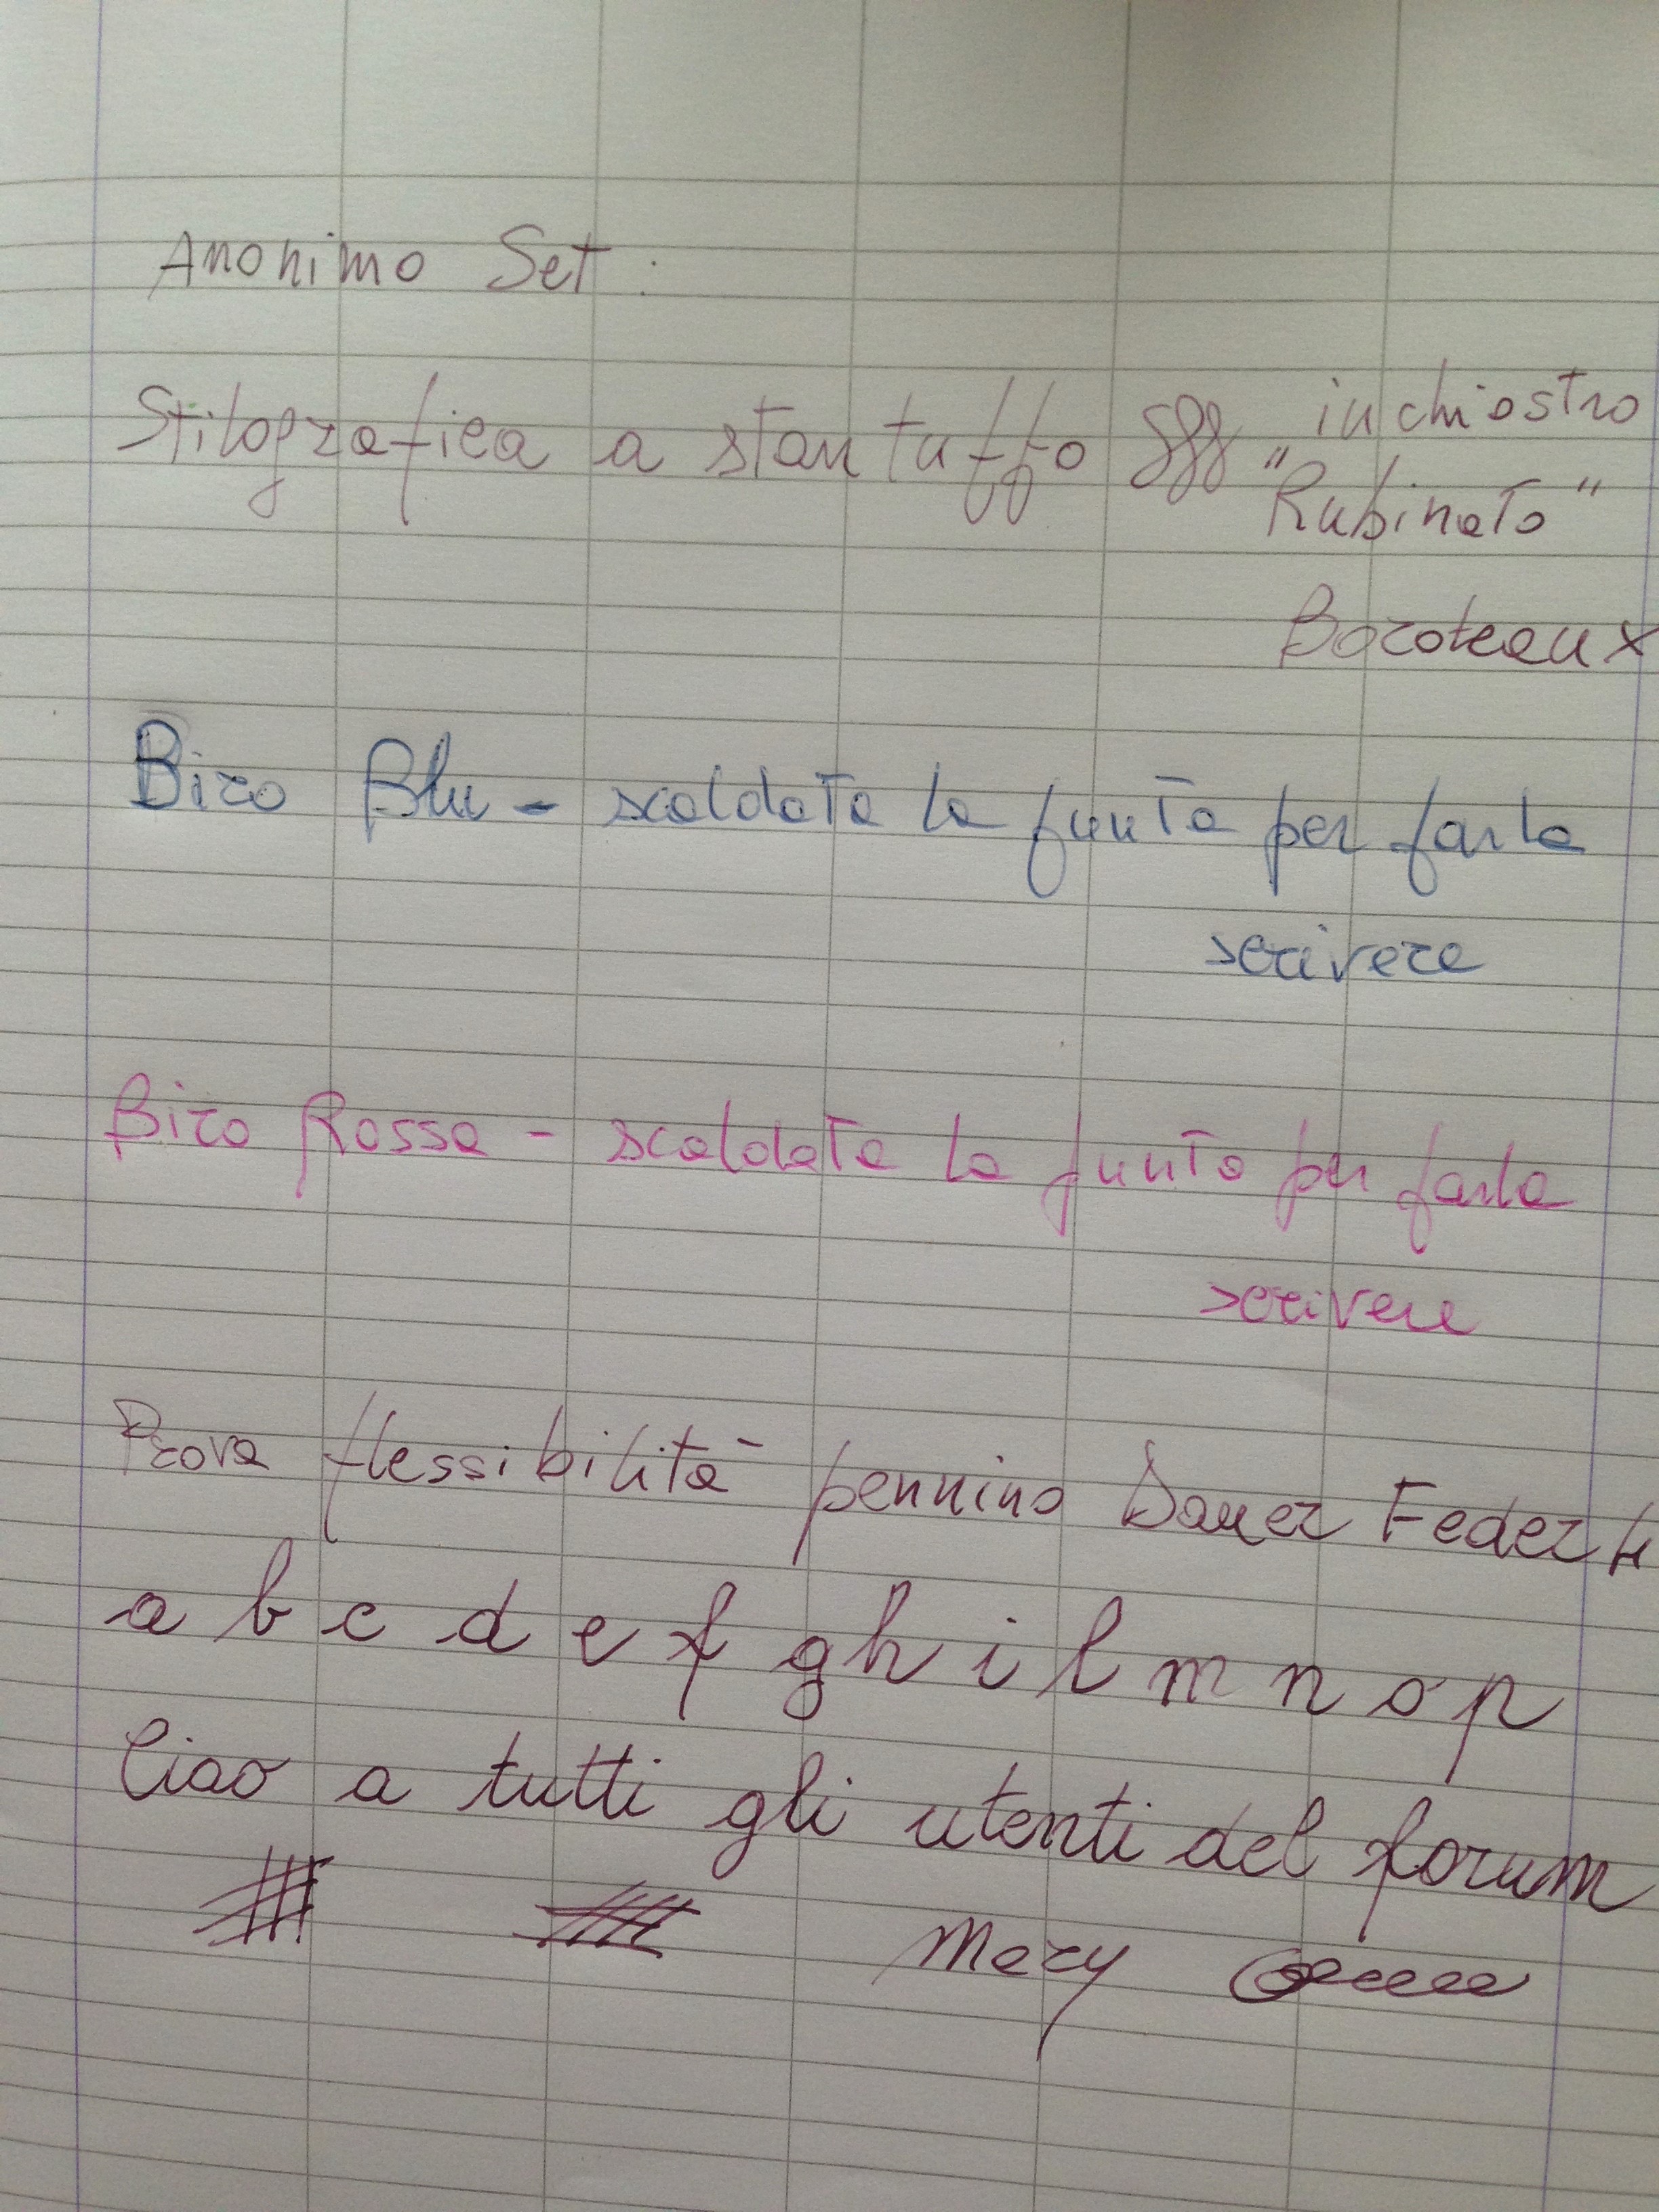 Anonimo Set :
Stilografica a stantuffo
inchiostro
"Rubinato"
Bordeaux
Biro Blu - scaldata la punta per farla
scrivere
Biro Rossa - scaldata la punta per farla
scrivere
Prova flessibilità pennino Dauer Feder
a b c d e f g h i l m n o p
Ciao a tutti gli utenti del forum
Mary